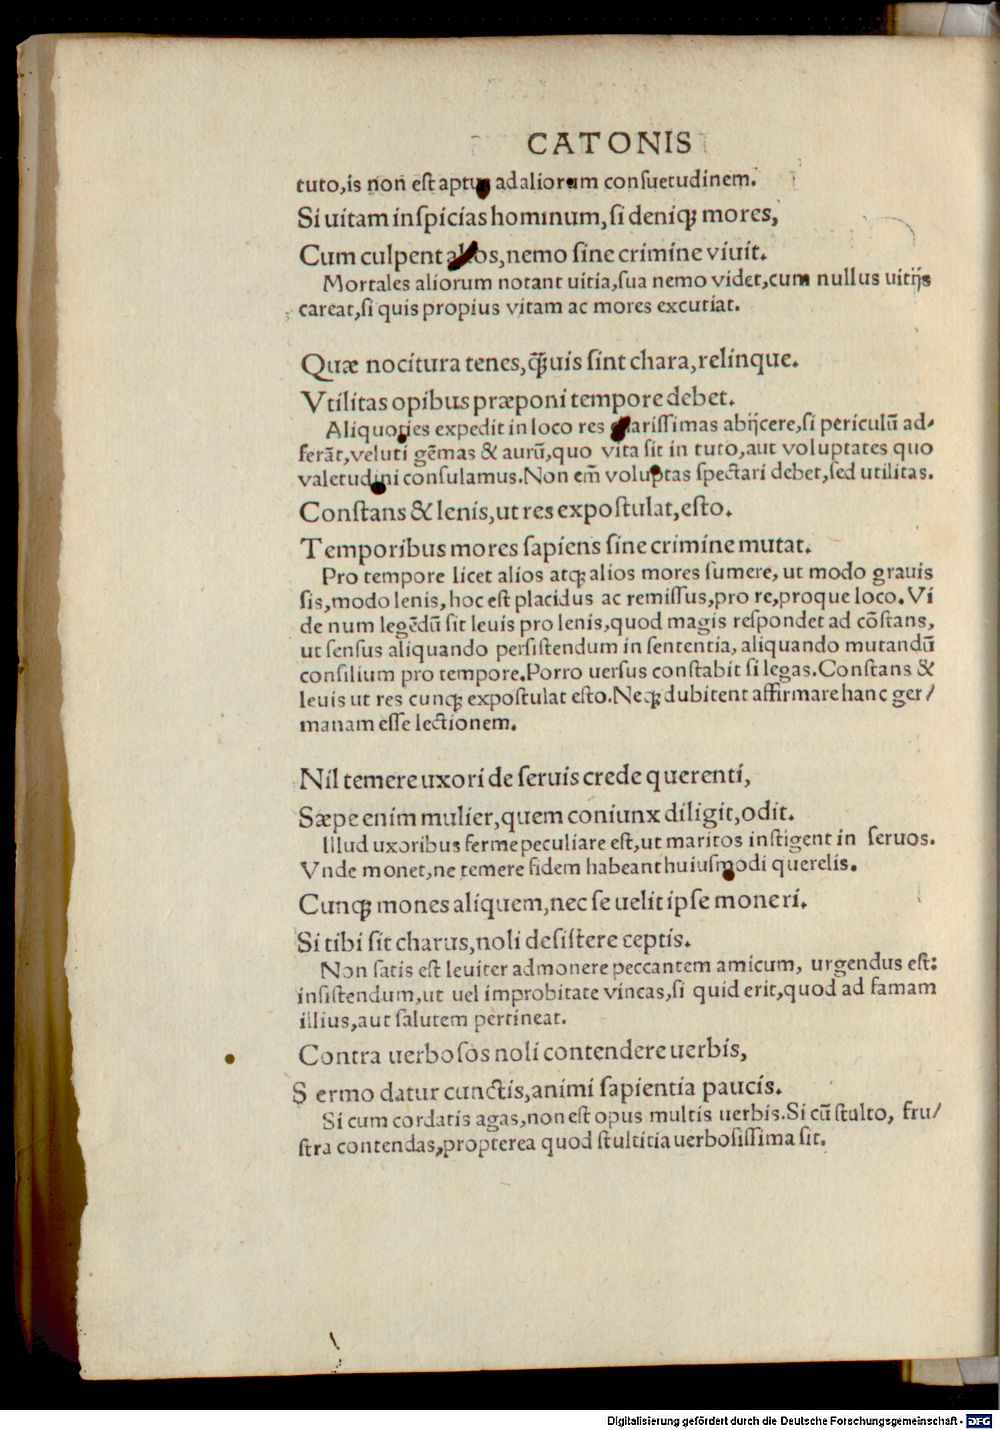 CATONIS
tuto,is non est aptus ad aliorum consuetudinem.
Si uitam inspicias hominum,si deniqꝫ mores,
Cum culpent alios,nemo sine crimine viuit.
Mortales aliorum notant uitia,sua nemo videt,cum nullus uitijs
careat,si quis propius vitam ac mores excutiat.
Quæ nocitura tenes,q̄uis sint chara,relinque.
Vtilitas opibus præponi tempore debet.
Aliquoties expedit in loco res clarissimas abijcere,si periculū ad-
ferāt,veluti gēmas & aurū,quo vita sit in tuto,aut voluptates quo
valetudini consulamus.Non em̄ voluptas spectari debet,sed utilitas.
Constans & lenis,ut res expostulat,esto.
Temporibus mores sapiens sine crimine mutat.
Pro tempore licet alios atqꝫ alios mores sumere, ut modo grauis
sis,modo lenis, hoc est placidus ac remissus,pro re,proque loco. Vi
de num legēdū sit leuis pro lenis,quod magis respondet ad cōstans,
ut sensus aliquando persistendum in sententia, aliquando mutandū
consilium pro tempore.Porro uersus constabit si legas.Constans &
leuis ut res cunqꝫ expostulat esto.Neqꝫ dubitent affirmare hanc ger/
manam esse lectionem.
Nil temere uxori de seruis crede querenti,
Sæpe enim mulier,quem coniunx diligit,odit.
Illud uxoribus ferme peculiare est,ut maritos instigent in seruos.
Vnde monet,ne temere fidem habeant huiusmodi querelis.
Cunqꝫ mones aliquem,nec se uelit ipse moneri.
Si tibi sit charus,noli desistere ceptis.
Non satis est leuiter admonere peccantem amicum, urgendus est:
insistendum,ut uel improbitate vincas,si quid erit,quod ad famam
illius,aut salutem pertineat.
Contra uerbosos noli contendere uerbis,
S ermo datur cunctis,animi sapientia paucis.
Si cum cordatis agas,non est opus multis uerbis.Si cū stulto, fru/
stra contendas,propterea quod stultitia uerbosissima sit.
Digitalisierung gefördert durch die Deutsche Forschungsgemeinschaft - DFG